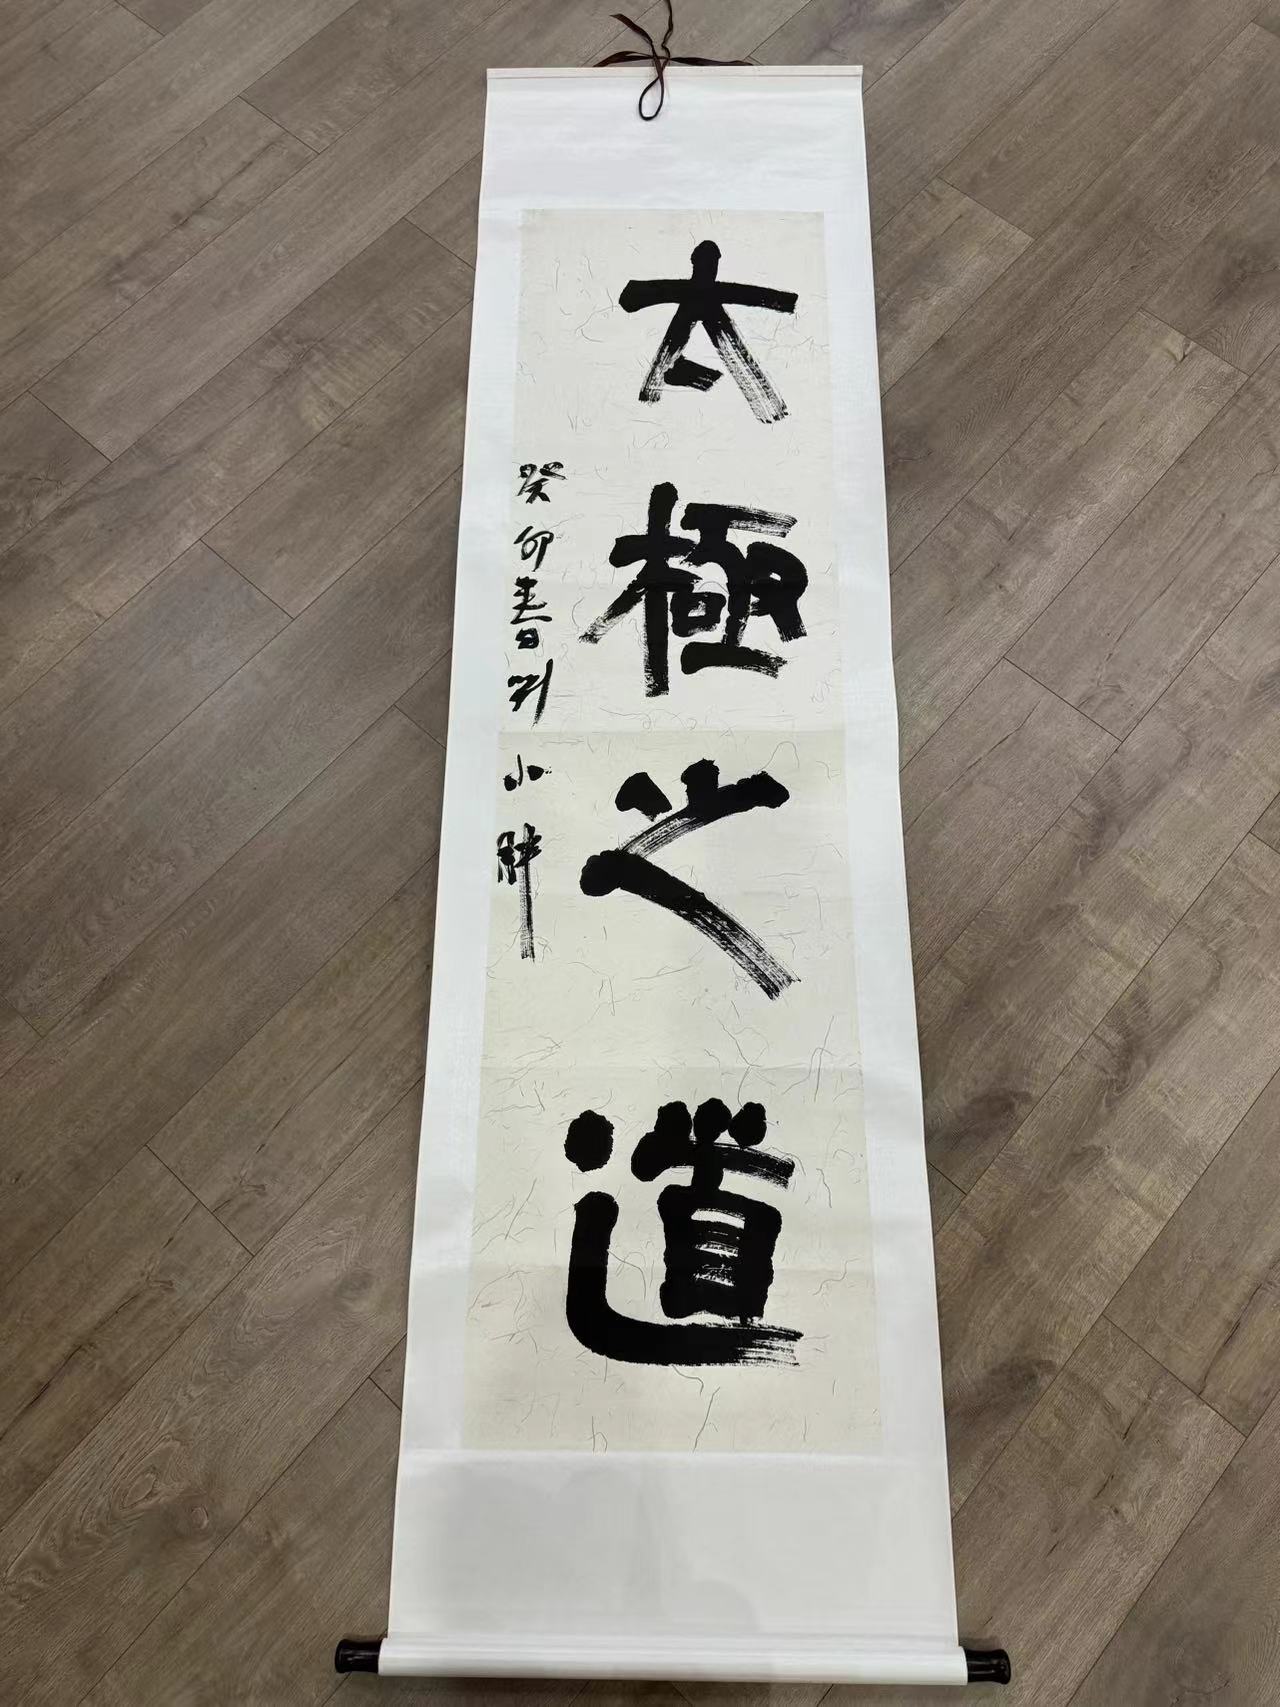 太極之道
癸卯春日刘小胖